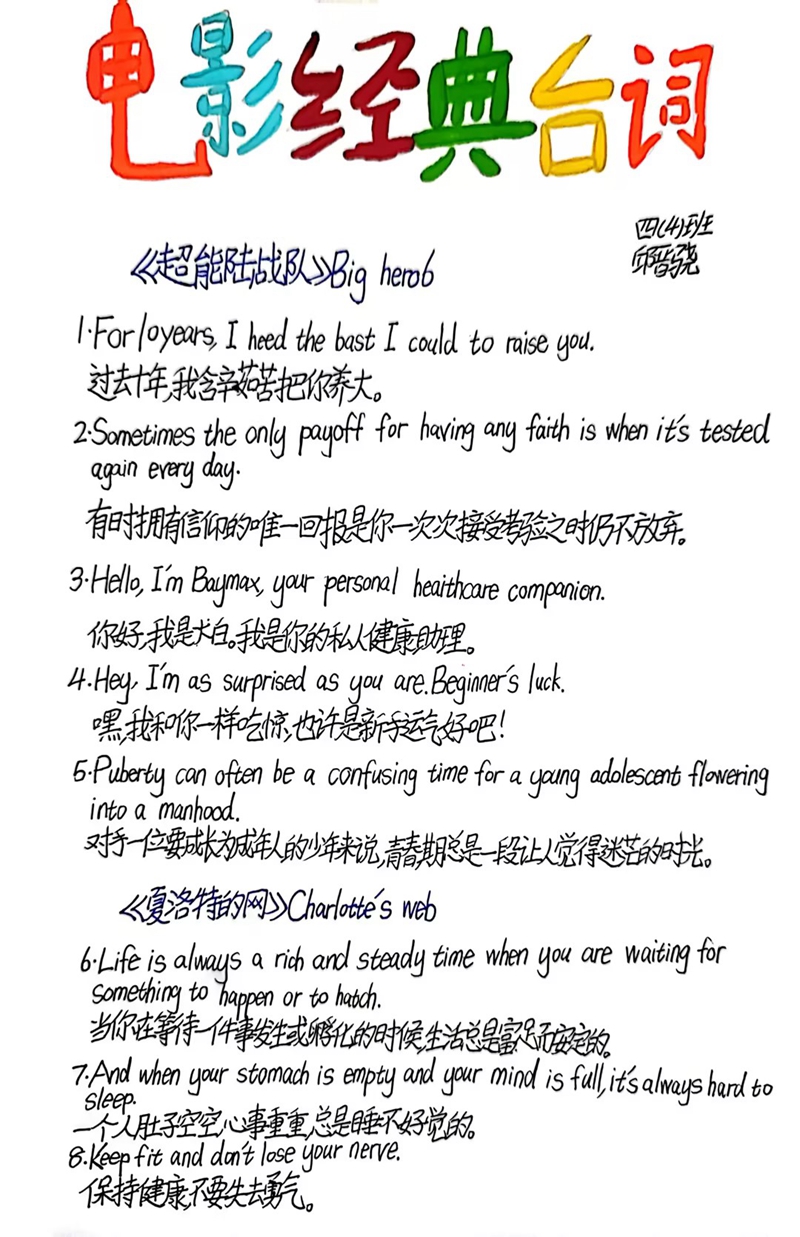 电影经典台词
四(4)班
邱晋骁
《超能陆战队》Big hero6
1.For 10 years, I heed the bast I could to raise you.
过去十年,我含辛茹苦把你养大。
2.Sometimes the only payoff for having any faith is when it's tested
again every day.
有时拥有信仰的唯一回报是你一次次接受考验之时仍不放弃。
3.Hello, I'm Baymax, your personal heaithcare companion.
你好,我是大白。我是你的私人健康助理。
4.Hey, I'm as surprised as you are.Beginner's luck.
嘿,我和你一样吃惊,也许是新手运气好吧!
5.Puberty can often be a confusing time for a young adolescent flowering
into a manhood.
对于一位要成长为成年人的少年来说,青春期总是一段让人觉得迷茫的时光。
《夏洛特的网》Charlotte's web
6.Life is always a rich and steady time when you are waiting for
something to happen or to hatch.
当你在等待一件事发生或孵化的时候,生活总是富足而安定的。
7.And when your stomach is empty and your mind is full,it's always hard to
sleep.
一个人肚子空空,心事重重,总是睡不好觉的。
8.Keep fit and don't lose your nerve.
保持健康,不要失去勇气。